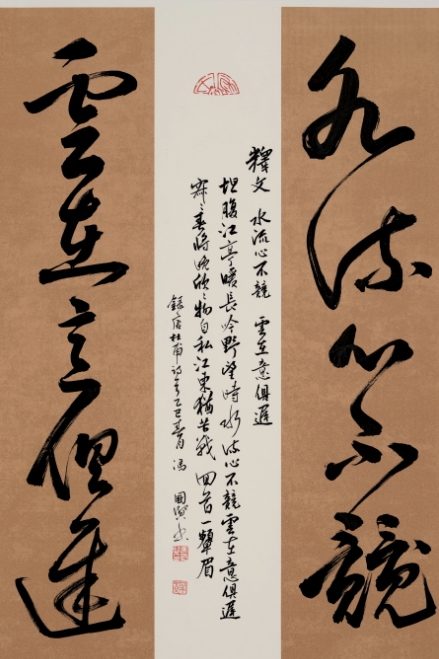 水流心不競
釋文 水流心不競 雲在意俱遲
坦腹江亭暖長吟野望時水流心不競雲在意俱遲
寂〻春將晚欣〻物自私江東猶苦戰 回首一顰眉
錄唐杜甫詩 乙巳春月 馮國賢書
雲在意俱遲